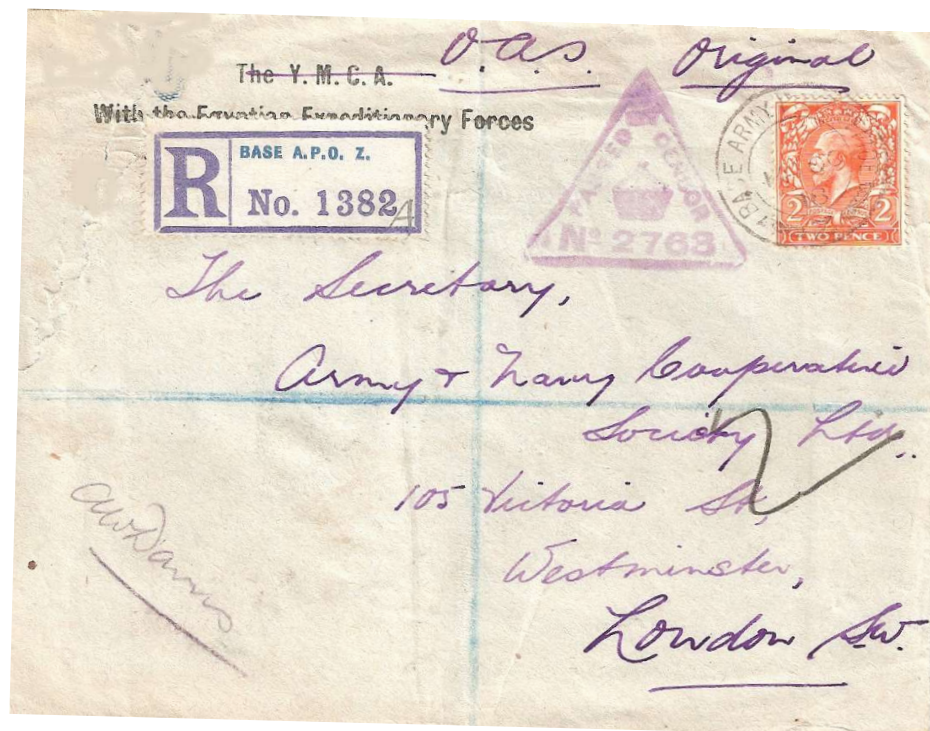 O.A.S. Original
The Y. M. C. A.
With the Egyptian Expeditionary Forces
R
BASE A.P.O. Z.
No. 1382A
PASSED CENSOR
No 2763
BASE ARMY
2 2
TWO PENCE
The Secretary,
Army & Navy Cooperative
Society Ltd.,
105 Victoria St,
Westminster,
London S.W.